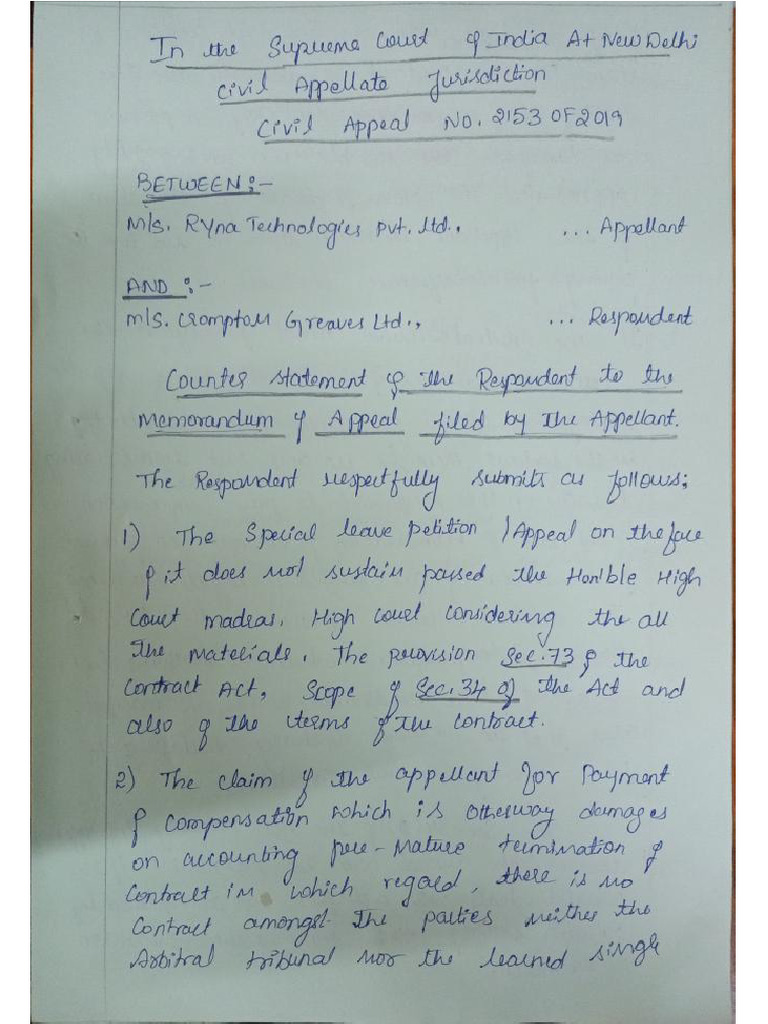 In the Supreme Court of India At New Delhi
Civil Appellate Jurisdiction
Civil Appeal No. 2153 OF 2019
BETWEEN:-
M/s. Ryna Technologies Pvt. Ltd., ... Appellant
AND :-
M/s. Crompton Greaves Ltd., ... Respondent
Counter statement of the Respondent to the
Memorandum of Appeal filed by The Appellant.
The Respondent respectfully submits as follows;
1) The Special leave petition / Appeal on the face
of it does not sustain passed the Hon'ble High
Court madras, High Court considering the all
The materials, The provision Sec.73 of the
Contract Act, Scope of Sec.34 of the Act and
also of the terms of the contract.
2) The claim of the appellant for Payment
of compensation which is otherway damages
on accounting pre-mature termination of
Contract in which regard, there is no
Contract amongst the parties neither the
Arbitral tribunal nor the learned single